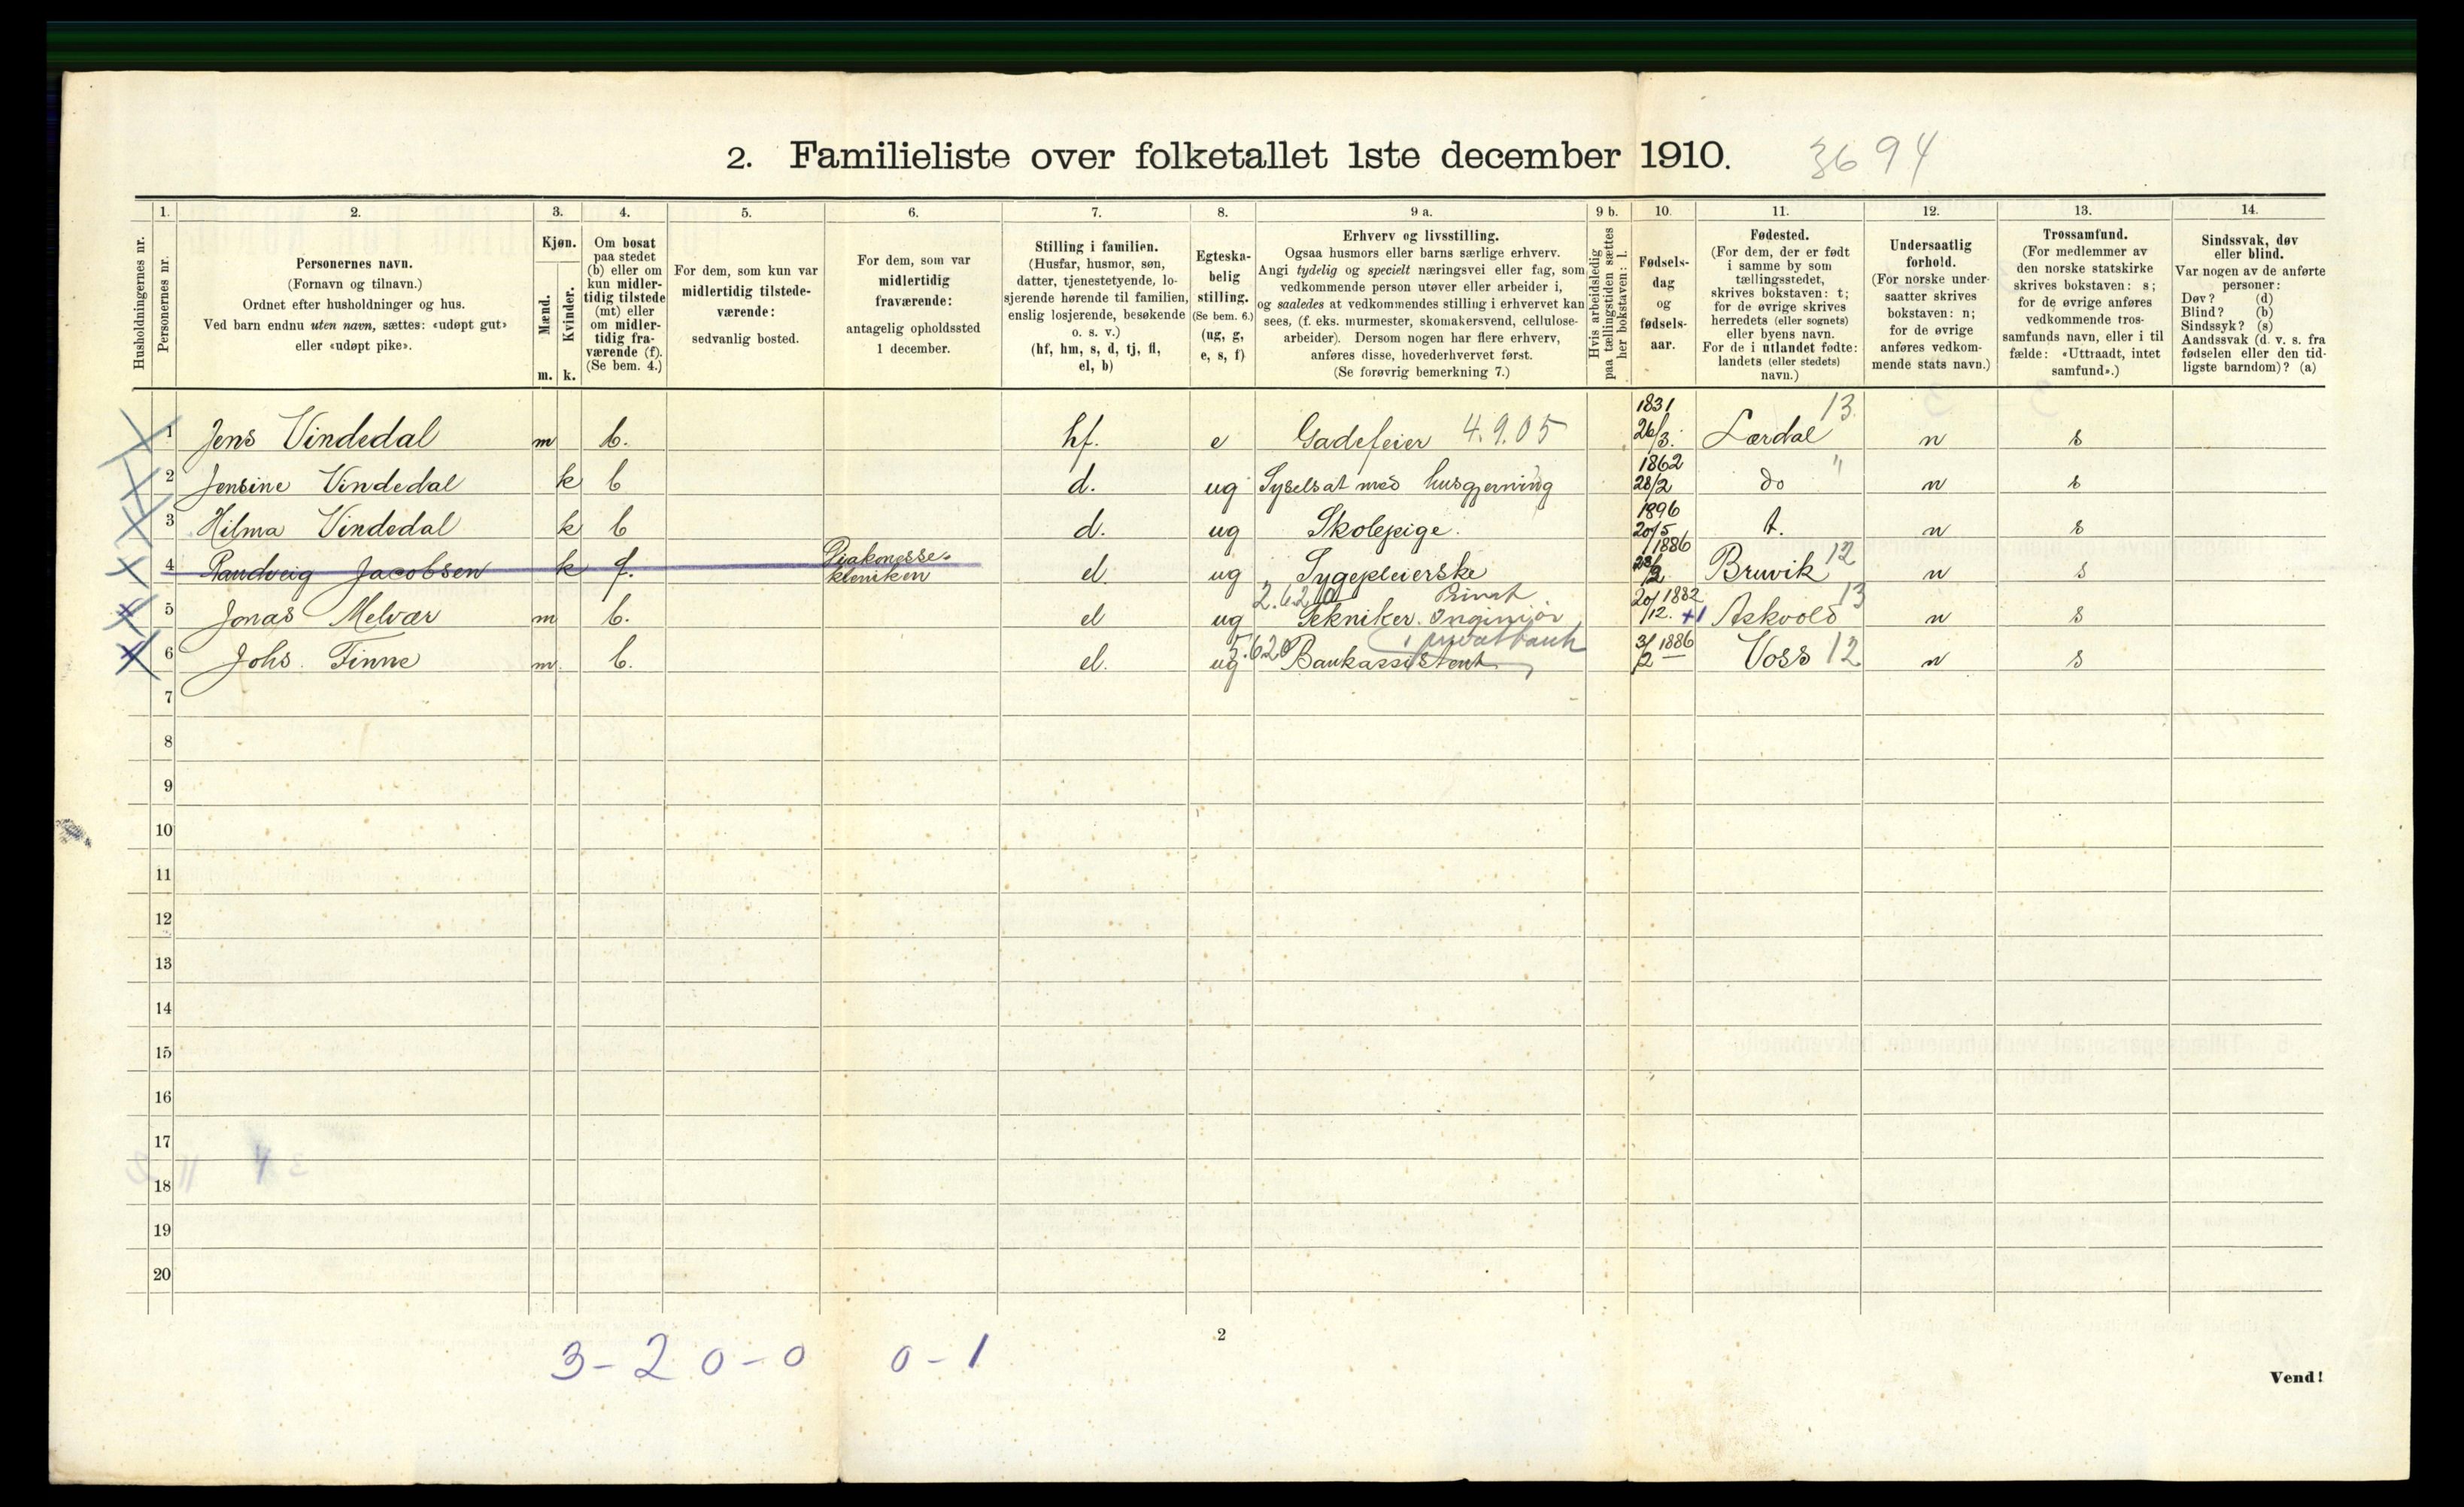 2. Familieliste over folketallet 1ste december 1910. 3694
1. 2. 3. 4. 5. 6. 7. 8. 9 a. 9 b. 10. 11. 12. 13. 14.
Husholdningernes nr.
Personernes nr.
Personernes navn.
(Fornavn og tilnavn.)
Ordnet efter husholdninger og hus.
Ved barn endnu uten navn, sættes: «udøpt gut»
eller «udøpt pike».
Kjøn.
Mænd.
Kvinder.
m. k.
Om bosat
paa stedet
(b) eller om
kun midler-
tidig tilstede
(mt) eller
om midler-
tidig fra-
værende (f).
(Se bem. 4.)
For dem, som kun var
midlertidig tilstede-
værende:
sedvanlig bosted.
For dem, som var
midlertidig
fraværende:
antagelig opholdssted
1 december.
Stilling i familien.
(Husfar, husmor, søn,
datter, tjenestetyende, lo-
sjerende hørende til familien,
enslig losjerende, besøkende
o. s. v.)
(hf, hm, s, d, tj, fl,
el, b)
Egteska-
belig
stilling.
(Se bem. 6.)
(ug, g,
e, s, f)
Erhverv og livsstilling.
Ogsaa husmors eller barns særlige erhverv.
Angi tydelig og specielt næringsvei eller fag, som
vedkommende person utøver eller arbeider i,
og saaledes at vedkommendes stilling i erhvervet kan
sees, (f. eks. murmester, skomakersvend, cellulose-
arbeider). Dersom nogen har flere erhverv,
anføres disse, hovederhvervet først.
(Se forøvrig bemerkning 7.)
Hvis arbeidsledig
paa tællingstiden sættes
her bokstaven: l.
Fødsels-
dag
og
fødsels-
aar.
Fødested.
(For dem, der er født
i samme by som
tællingsstedet,
skrives bokstaven: t;
for de øvrige skrives
herredets (eller sognets)
eller byens navn.
For de i utlandet fødte:
landets (eller stedets)
navn.)
Undersaatlig
forhold.
(For norske under-
saatter skrives
bokstaven: n;
for de øvrige
anføres vedkom-
mende stats navn.)
Trossamfund.
(For medlemmer av
den norske statskirke
skrives bokstaven: s;
for de øvrige anføres
vedkommende tros-
samfunds navn, eller i til
fælde: «Uttraadt, intet
samfund».)
Sindssvak, døv
eller blind.
Var nogen av de anførte
personer:
Døv? (d)
Blind? (b)
Sindssyk? (s)
Aandssvak (d. v. s. fra
fødselen eller den tid-
ligste barndom)? (a)
1 Jens Vindedal m b. hf. e Gadefeier 4.9.05 1831 26/3. Lærdal 13. n s
2 Jensine Vindedal k b d. ug Syselsat med husgjerning 1862 28/2 do " n s
3 Hilma Vindedal k b d. ug Skolepige. 1896 20/5 t. n s
4 Jacobsen k f. Diakonesse-kleniken el. ug Sygepleierske 1886 Bruvik 12 n s
5 Jonas Melvær m b. el ug Tekniker. Privat 20/12. 1882 +1 Askvold 13 n s
6 Johs. Finne m. b. el. ug 5.620 Bankassistent i privatbank 3/2 1886 Voss 12 n s
7
8
9
10
11
12
13
14
15
16
17
18
19
20
2
3 - 2 0 - 0 0 - 1
Vend!